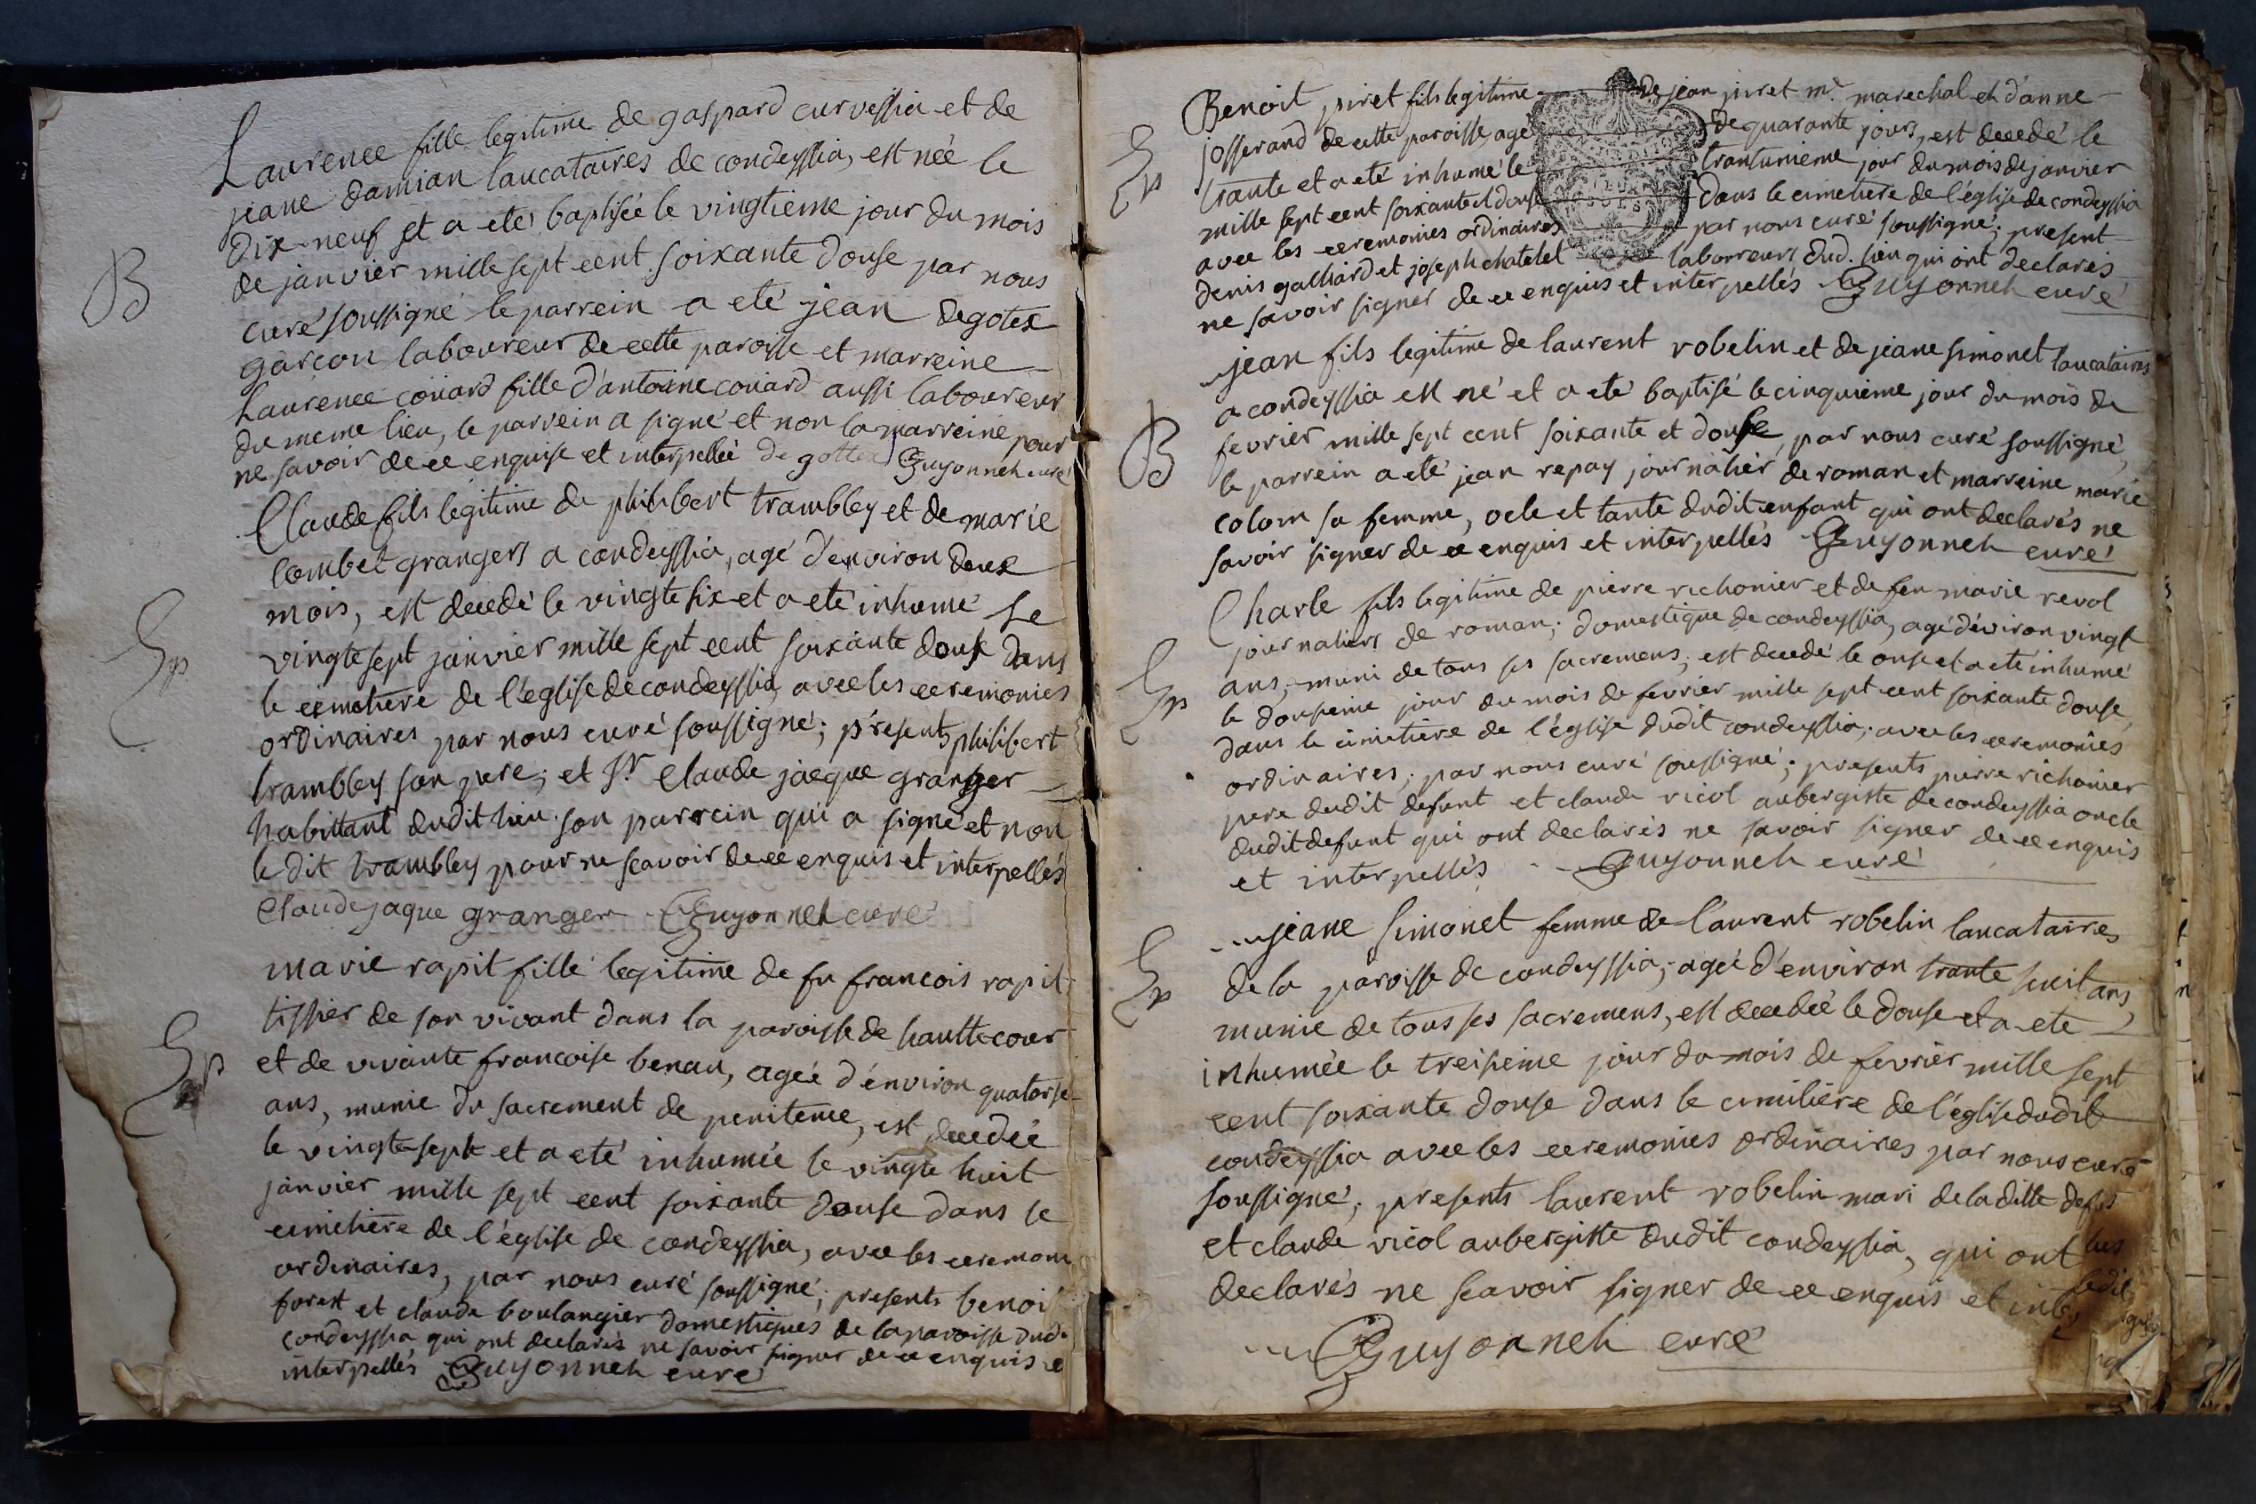 Laurence fille legitime de gaspard curvessia et de
jeane damian laucataires de condeyssia, est née le
dix-neuf et a eté baptisée le vingtieme jour du mois
B
de janvier mille sept cent soixante douse par nous
curé soussigné le parrein a eté jean degotex
garcon laboureur de cette paroisse et marreine
Laurence coüard fille d'antoine coüard aussi laboureur
du meme lieu, le parrein a signé et non la marreine pour
ne savoir de ce enquise et interpellée Degottex Guyonneh curé
Claude fils legitime de philibert trambley et de marie
combet grangers a condeyssia, agé d'environ deux
mois, est decedé le vingte six et a eté inhumé le
Sep
vingte sept janvier mille sept cent soixante douse dans
le cemetiere de l'eglise de condeyssia, avec les ceremonies
ordinaires par nous curé soussigné; presents philibert
trambley son pere; et Sr Claude jacque granger
habittant dudit lieu son parrein qui a signé et non
le dit trambley pour ne scavoir de ce enquis et interpellés
Claude jaque granger Guyonneh curé
marie rapit fille legitime de fu francois rapit
tissier de son vivant dans la paroisse de hautte cour
Sep
et de vivante francoise benau, agée d'environ quatorse
ans, munie du sacrement de penitence, est decedée
le vingte sept et a eté inhumée le vingte huit
janvier mille sept cent soixante douse dans le
cimetiere de l'église de condeyssia, avec les ceremon
ordinaires, par nous curé soussigné; presents benoi
forest et claude boulangier domestiques de la paroisse dud
condeyssia qui ont declarés ne savoir signer de ce enquis e
interpellés Guyonneh curé
Benoit piret fils legitime de jean piret me marechal et d'anne
Sep
josserand de cette paroisse, agé de quarante jours, est decedé le
trante et a eté inhumé le trantunieme jour du mois de janvier
mille sept cent soixante et douse dans le cimetiere de l'église de condeyssia
avec les ceremonies ordinaires par nous curé soussigné; present
denis galliard et joseph chatelet laboureurs dud. lieu qui ont declarés
ne savoir signer de ce enquis et interpellés Guyonneh curé
jean fils legitime de laurent robelin et de jeane simonet laucataires
a condeyssia est né et a eté baptisé le cinquieme jour du mois de
B
fevrier mille sept cent soixante et douse, par nous curé soussigné,
le parrein a eté jean repay journalier de roman et marreine marie
colom sa femme, ocle et tante dudit enfant qui ont declarés ne
savoir signer de ce enquis et interpellés Guyonneh curé
Charle fils legitime de pierre richonier et de feu marie revol
journaliers de roman; domestique de condeyssia, agé d'eviron vingt
Sep
ans, muni de tous ses sacremens, est decedé le onse et a eté inhumé
le douseime jour du mois de fevrier mille sept cent soixante douse,
dans le cimetiere de l'église dudit condeyssia; avec les ceremonies
ordinaires; par nous curé soussigné; presents pierre richonier
pere dudit defunt et claude vicol aubergiste de condeyssia oncle
dudit defunt qui ont declarés ne savoir signer de ce enquis
et interpellés Guyonneh curé
jeane Simonet femme de laurent robelin laucataires
Sep
de la paroisse de condeyssia, agée d'environ trante huit ans,
munie de tous ses sacremens, est decedée le douse et a ete
inhumée le treiseime jour du mois de fevrier mille sept
cent soixante douse dans le cimitiére de l'église dudit
condeyssia avec les ceremonies ordinaires par nous curé
soussigné; presents laurent robelin mari de la ditte def
et claude vicol aubergiste dudit condeyssia, qui ont
declarés ne scavoir signer de ce enquis et inte
Guyonneh curé